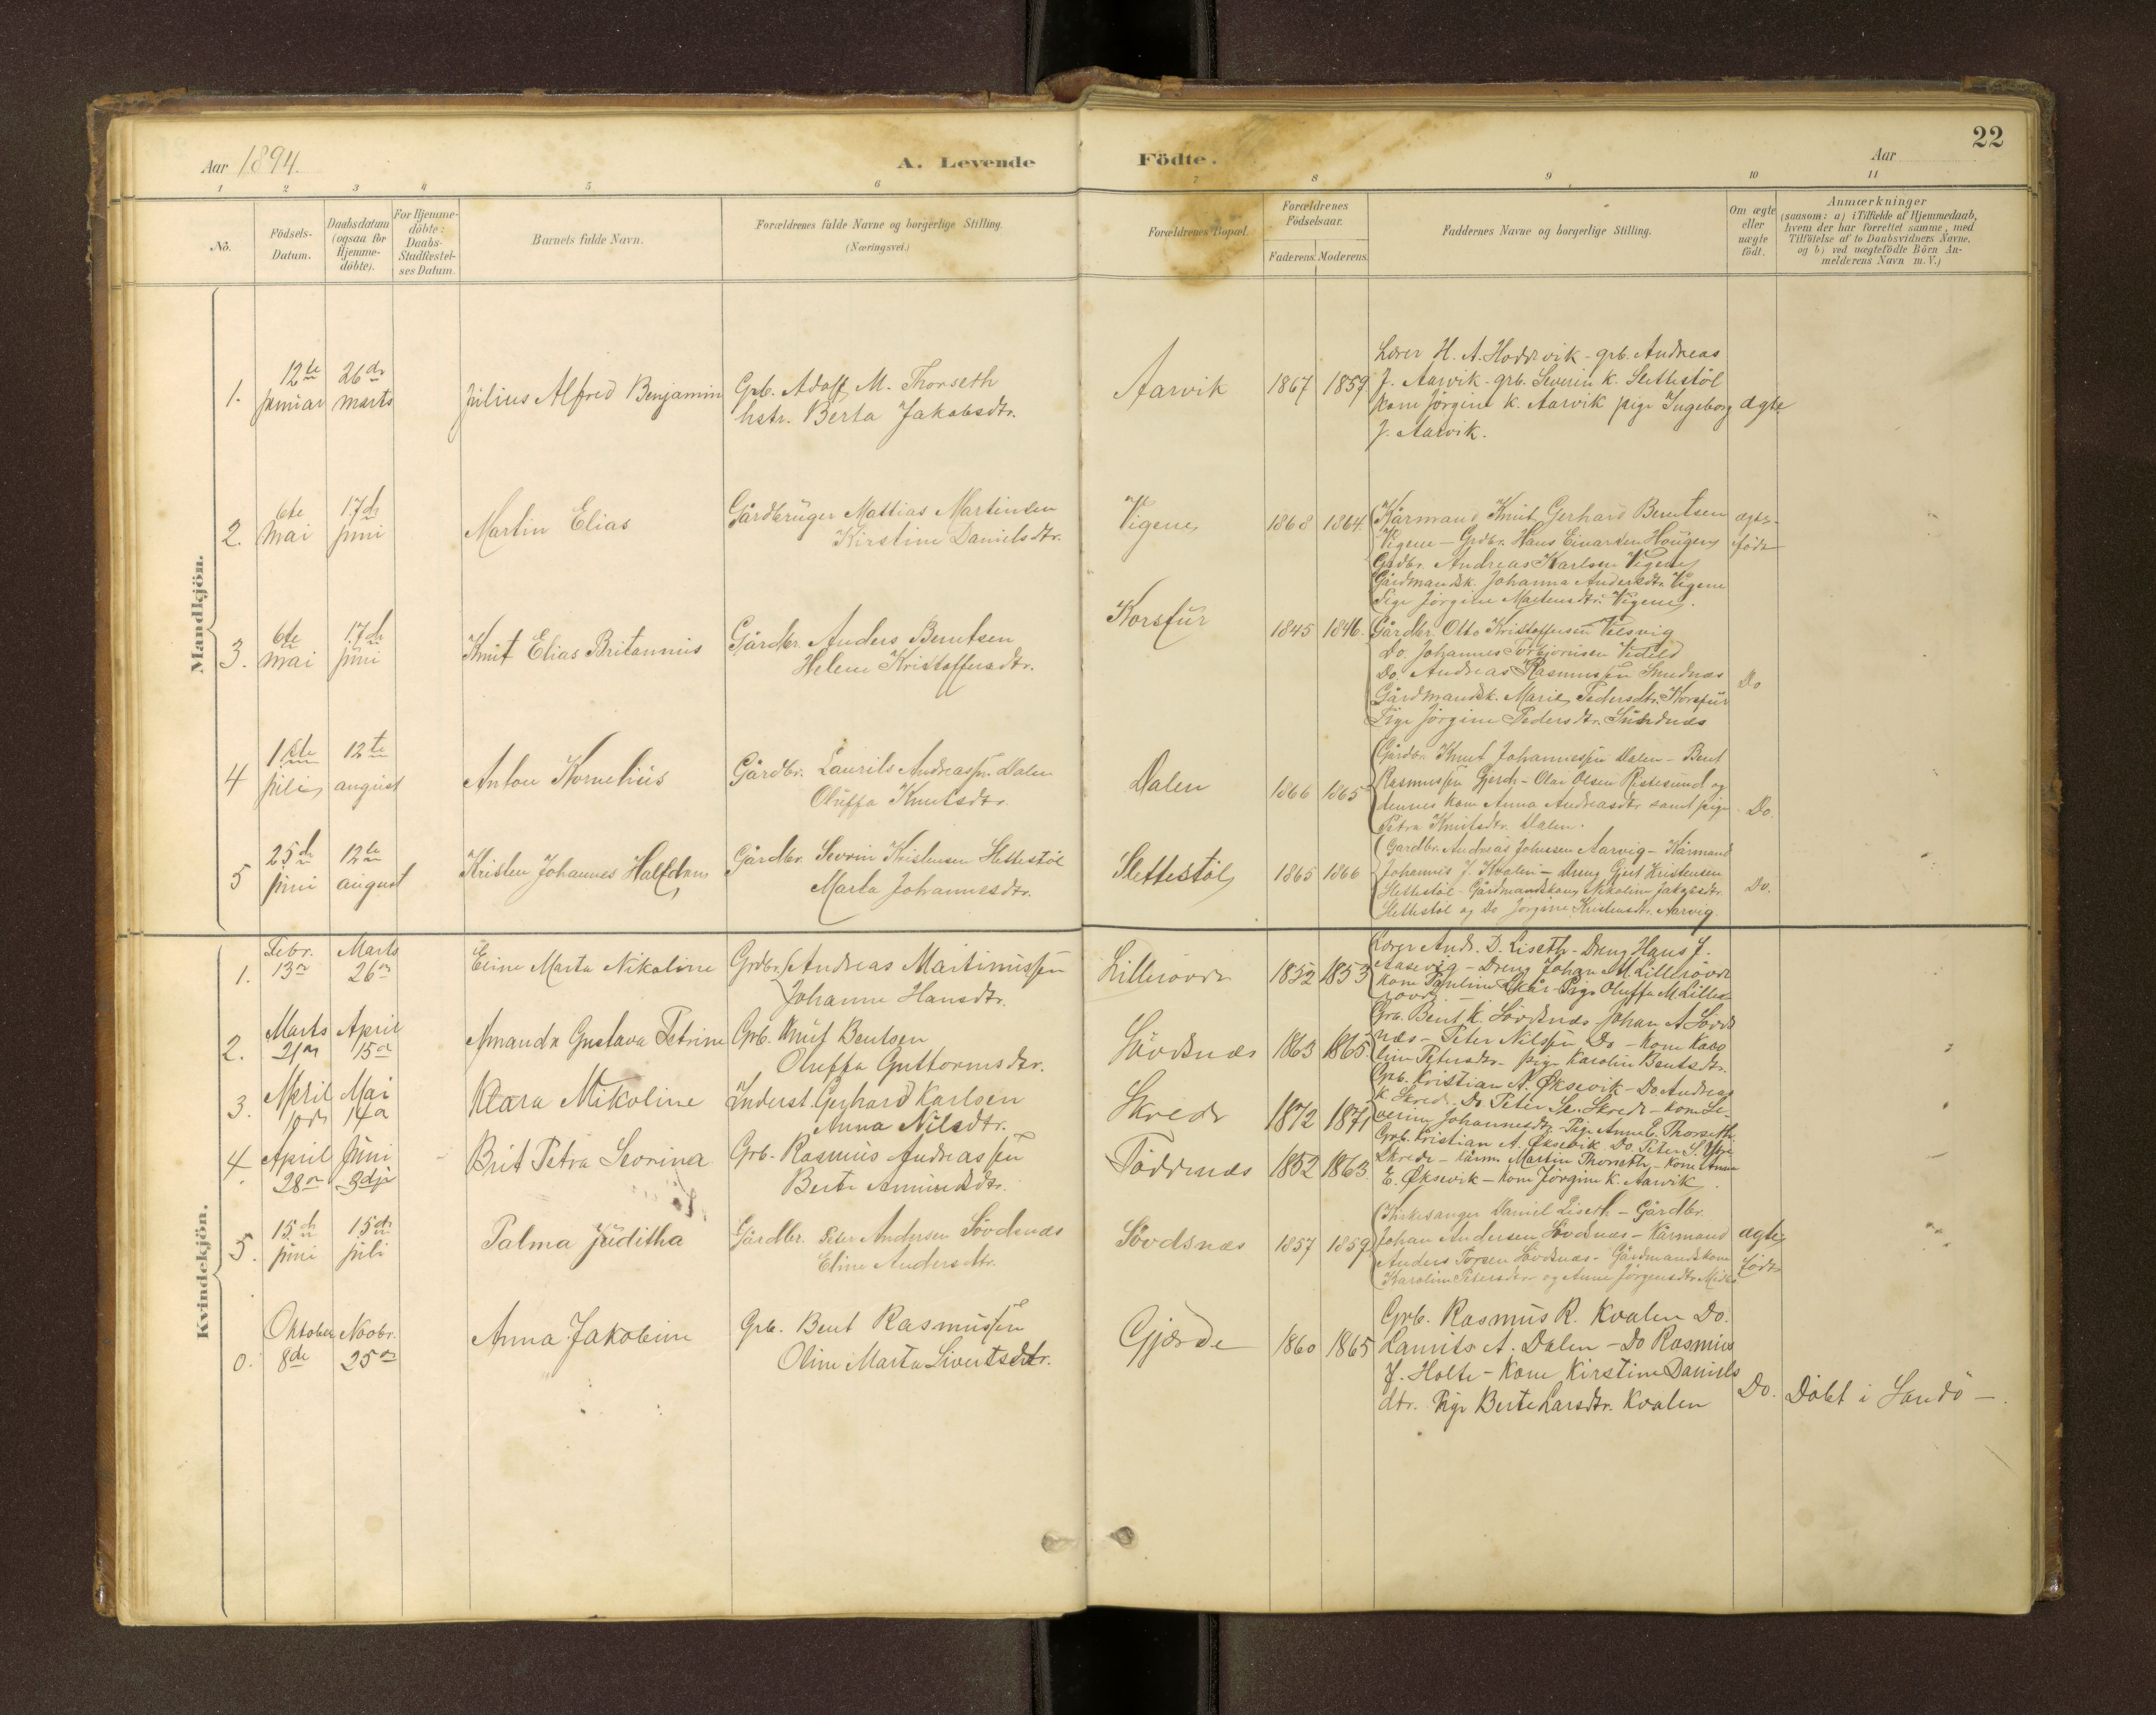 22
Aar 1894.
A. Levende Födte.
Aar
1 2 3 4 5 6 7 8 9 10 11
No.
Födsels-
Datum.
Daabsdatum
(ogsaa for
Hjemme-
döbte).
For Hjemme-
döbte:
Daabs-
Stadfæstel-
ses Datum.
Barnets fulde Navn.
Forældrenes fulde Navne og borgerlige Stilling.
(Næringsvei.)
Forældrenes Bopæl.
Forældrenes
Födselsaar.
Faderens. Moderens.
Faddernes Navne og borgerlige Stilling.
Om ægte
eller
uægte
födt.
Anmærkninger
(saasom: a) i Tilfælde af Hjemmedaab,
hvem der har forrettet samme, med
Tilföielse af to Daabsvidners Navne,
og b) ved uægtefödte Börn An-
melderens Navn m. V.)
Mandkjön.
1.
12te
januar
26de
marts
Julius Alfred Benjamin
Grb. Adolf M. Thorseth
hstr. Berta Jakobsdtr.
Aarvik
1867 1859
Lærer H. A. Hoddevik - grb. Andreas
J. Aarvik - grb. Severin K. Slettestöl
kone Jörgine K. Aarvik pige Ingeborg
J. Aarvik.
ægte
2.
6te
Mai
17de
juni
Martin Elias
Gårdbruger Mattias Martinsen
Kirstine Danielsdtr.
Vigene
1868 1864.
Kårmand Knut Gerhard Berntsen
Vigene - Grdbr. Hans Einarsen Hougen
Grdbr. Andreas Karlsen Vigene
Gårdmandsk. Johanna Andersdtr. Vigene
Pige Jörgine Martensdtr. Vigene.
ægte-
födte
3.
6te
mai
17de
juni
Knut Elias Britannius
Gårdbr. Anders Berntsen
Helene Kristoffersdtr.
Korsfur
1845 1846.
Gårdbr. Otto Kristoffersen
Do. Johannes Torbjörnsen
Do. Andreas Rasmussen Sundnæs
Gårdmandsk. Marie Pedersdtr. Korsfur
Pige Jörgine Pedersdtr. Sundnæs
Do
4
1ste
juli
12te
august
Anton Kornelius
Gårdbr. Laurits Andreassen Dalen
Oluffa Knutsdtr.
Dalen
1866 1865
Gårdbr. Knut Johannessen Dalen - Bent
Rasmussen Gjerde - Olav Olsen Ristesund og
dennes kone Anna Andreasdtr samt pige
Petra Knutsdtr. Dalen.
Do.
5
25de
juni
12te
august
Kristen Johannes Halfdan
Gårdbr. Sevrin Kristensen Slettestöl
Marta Johannesdtr.
Slettestöl
1865 1866
Gardbr. Andreas Johnsen Aarvig - Kårmand
Johannes J. Kvalen - Dreng Gjert Kristensen
Slettestöl - Gårdmandskone Nikoline Jakobsdtr.
Slettestöl og Do Jörgine Kristensdtr. Aarvig.
Do.
Kvindekjön.
1.
Febr.
13de
Marts
26de
Eline Marta Nikoline
Grdbr. Andreas Martinussen
Johanne Hansdtr.
Lillerövde
1852 1853
Lærer Andr. D. Liseth - Dreng Hans J.
Aasevig - Dreng Johan M. Lillerövde
Kone Pauline Skår - Pige Oluffa M. Lille-
rövde
2.
Marts
21de
April
15de
Amanda Gustava Petrine
Grb. Knut Bentsen
Oluffa Guttormsdtr.
Sövdsnæs
1863 1865.
Grb. Bent K. Sövdsnæs Johan A Sövds
næs - Peter Nilssen Do - Kone Karo
line Petersdtr. pige Karolin Bentsdtr.
3.
April
10de
Mai
14de
Klara Nikoline
Inderst. Gerhard Karlsen
Anna Nilsdtr.
Skrede
1872 1871
Grb. Kristian N. Öksevik - Do Andreas
K. Skrede. Do. Peter Se. Skrede - Kone Se-
verine Johannesdtr. - Pige Anne E. Thorseth
4
April
28de
Juni
3dje
Brit Petra Severina
Grb. Rasmus Andreassen
Berte Amundsdtr.
Töddenæs
1852 1863.
Grb. Kristian A. Öksevik Do. Peter S.
Skrede - Kårm. Martin Thorseth, - Kone Anne
E. Øksevik - Kone Jörgine K. Aarvik
5.
15de
juni
15de
juli
Palma Juditha
Gårdbr. Peter Andersen Sövdsnæs
Eline Andersdtr.
Sövdsnæs
1857 1859
Kirkesanger Daniel Liseth - Gårdbr.
Johan Andersen Sövdsnæs - Kårmand
Anders Torsen Sövdsnæs - Gårdmandskone
Karoline Petersdtr og Anne Jörgensdtr
ægte
födte
0.
Oktober
8de
Novbr.
25de
Anna Jakobine
Grb. Bent Rasmussen
Oline Marta Sivertsdtr.
Gjærde
1860 1865
Grb. Rasmus R. Kvalen Do.
Laurits A. Dalen - Do Rasmus
J. Holte - Kone Kirstine Daniels
dtr. Pige Berte Larsdtr. Kvalen
Do.
Döbt i Sandö -